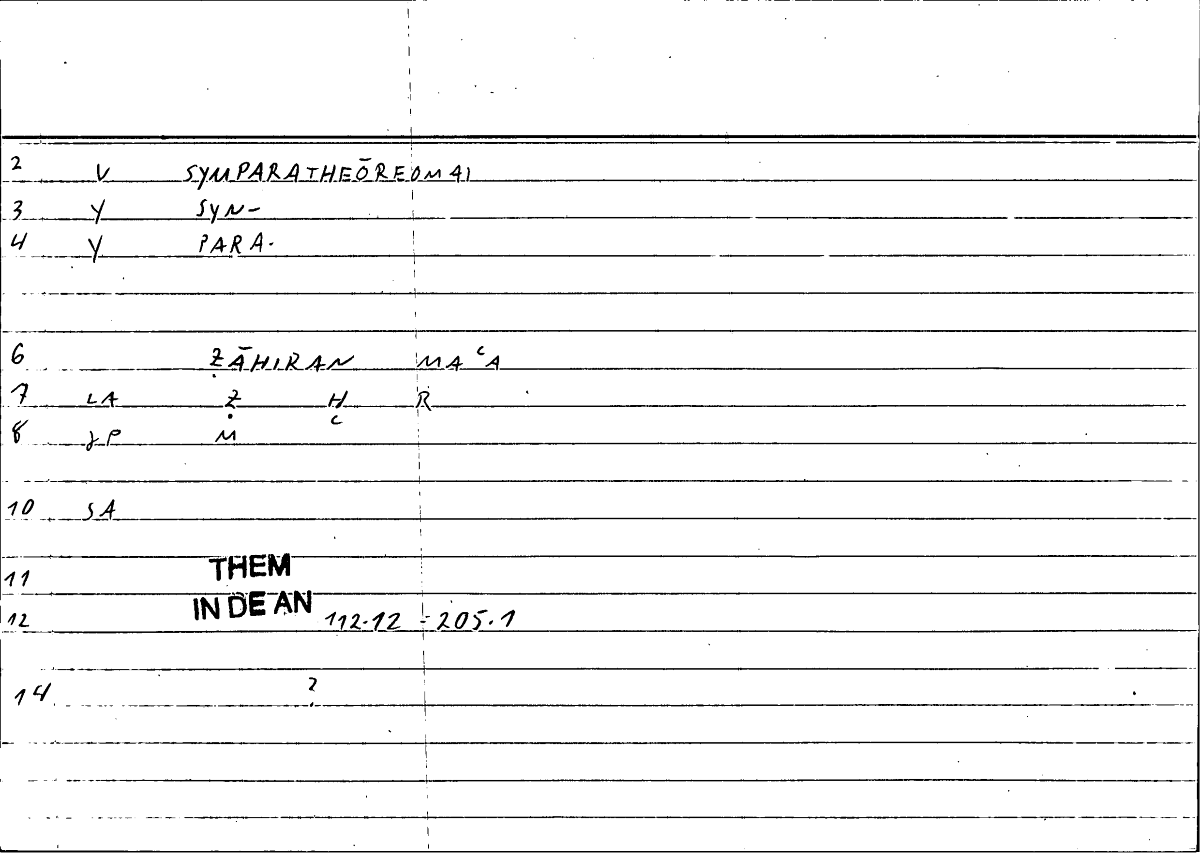 2 V SYMPARATHEŌREOMAI
3 Y SYN-
4 Y PARA-
6 ẒĀHIRAN MAʿA
7 LA Ẓ H R
8 JP M ʿ
10 SA
11 THEM
12 IN DE AN 112.12 - 205.1
14 ?